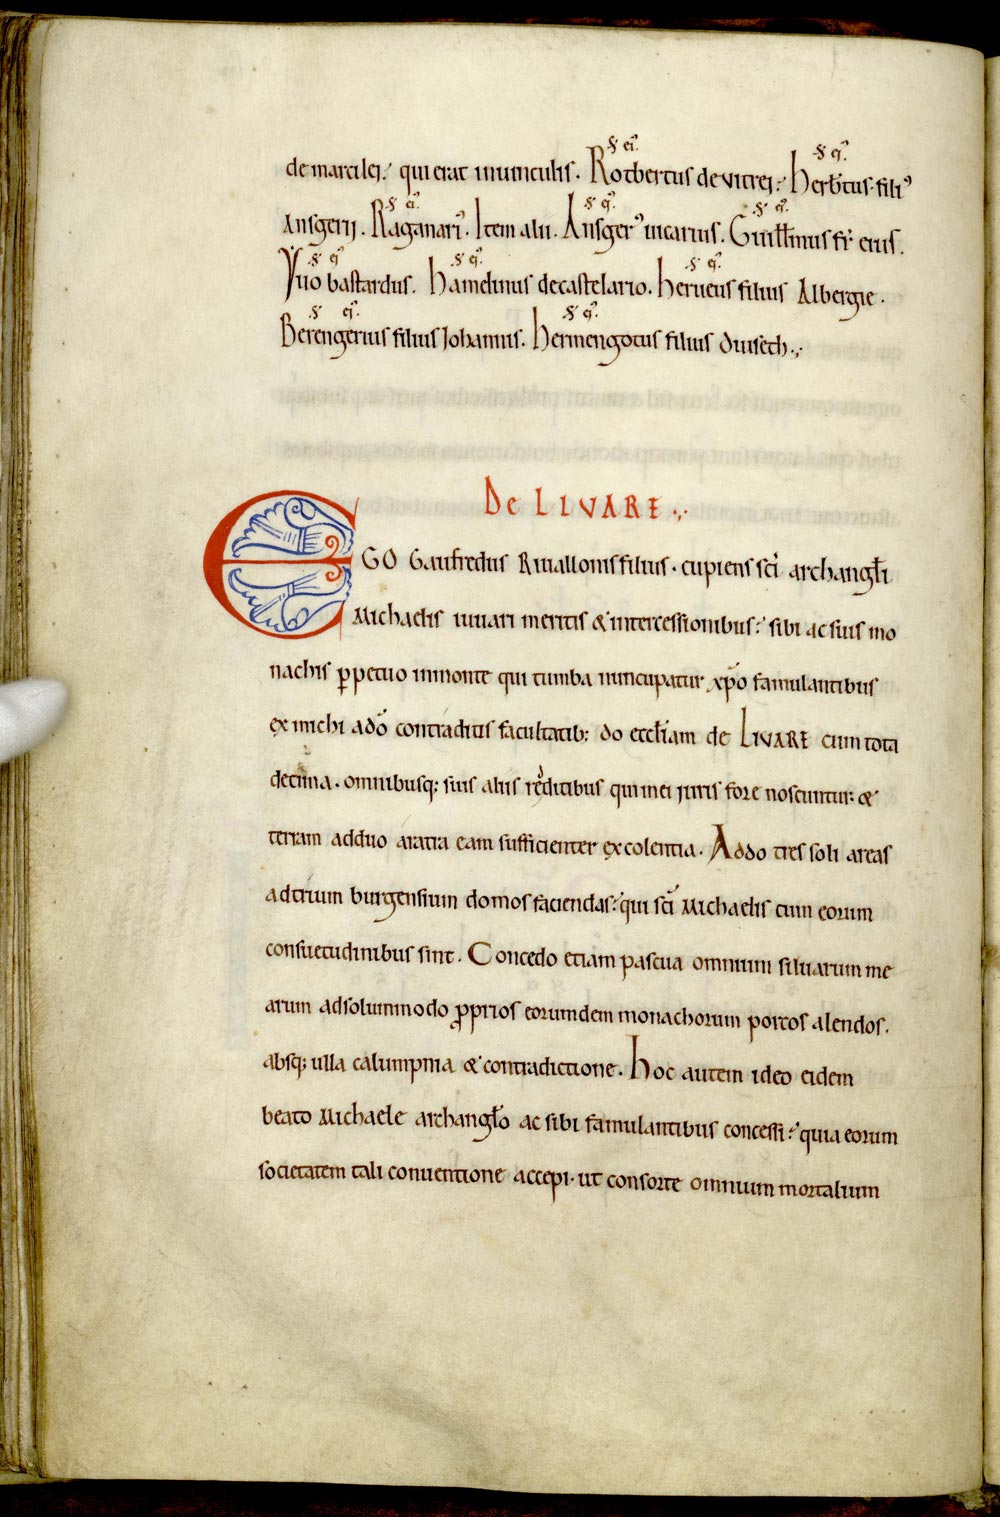 de marcilei; qui erat in uinculis. Rotbertus de vitrei; herb̄tus. filiꝰ
Ansgerij. Raganariꝰ. Item alii. Ansgerꝰ uicarius. Guill̄mus fr̄ eius.
Yuo bastardus. hamelinus de castelario. herueus filius Albergie.
Berengerius filius Johannis. hermengotus filius Diuseth.
De LIVARE
EGO Gaufredus Riuallonis filius. cupiens sc̄i archangl̄i
Michaelis iuuari meritis & intercessionibus; sibi ac suis mo
nachis ꝑpetuo in monte qui tumba nuncupatur xp̄o famulantibus
ex michi a do̅ contraditis facultatib; do eccl̄iam de LIVARE cum tota
decima. omnibusq; suis aliis redditibus qui mei iuris fore noscuntur; &
terram ad duo aratra eam sufficienter excolentia. Addo tres soli areas
ad trium burgensium domos faciendas; qui sc̄i Michaelis cum eorum
consuetudinibus sint. Concedo etiam pascua omnium siluarum me
arum ad solummodo ꝓprios eorumdem monachorum porcos alendos.
absq; ulla calumpnia & contradictione. hoc autem ideo eidem
beato Michaele archangl̄o ac sibi famulantibus concessi; quia eorum
societatem tali conuentione accepi. ut consorte omnium mortalium